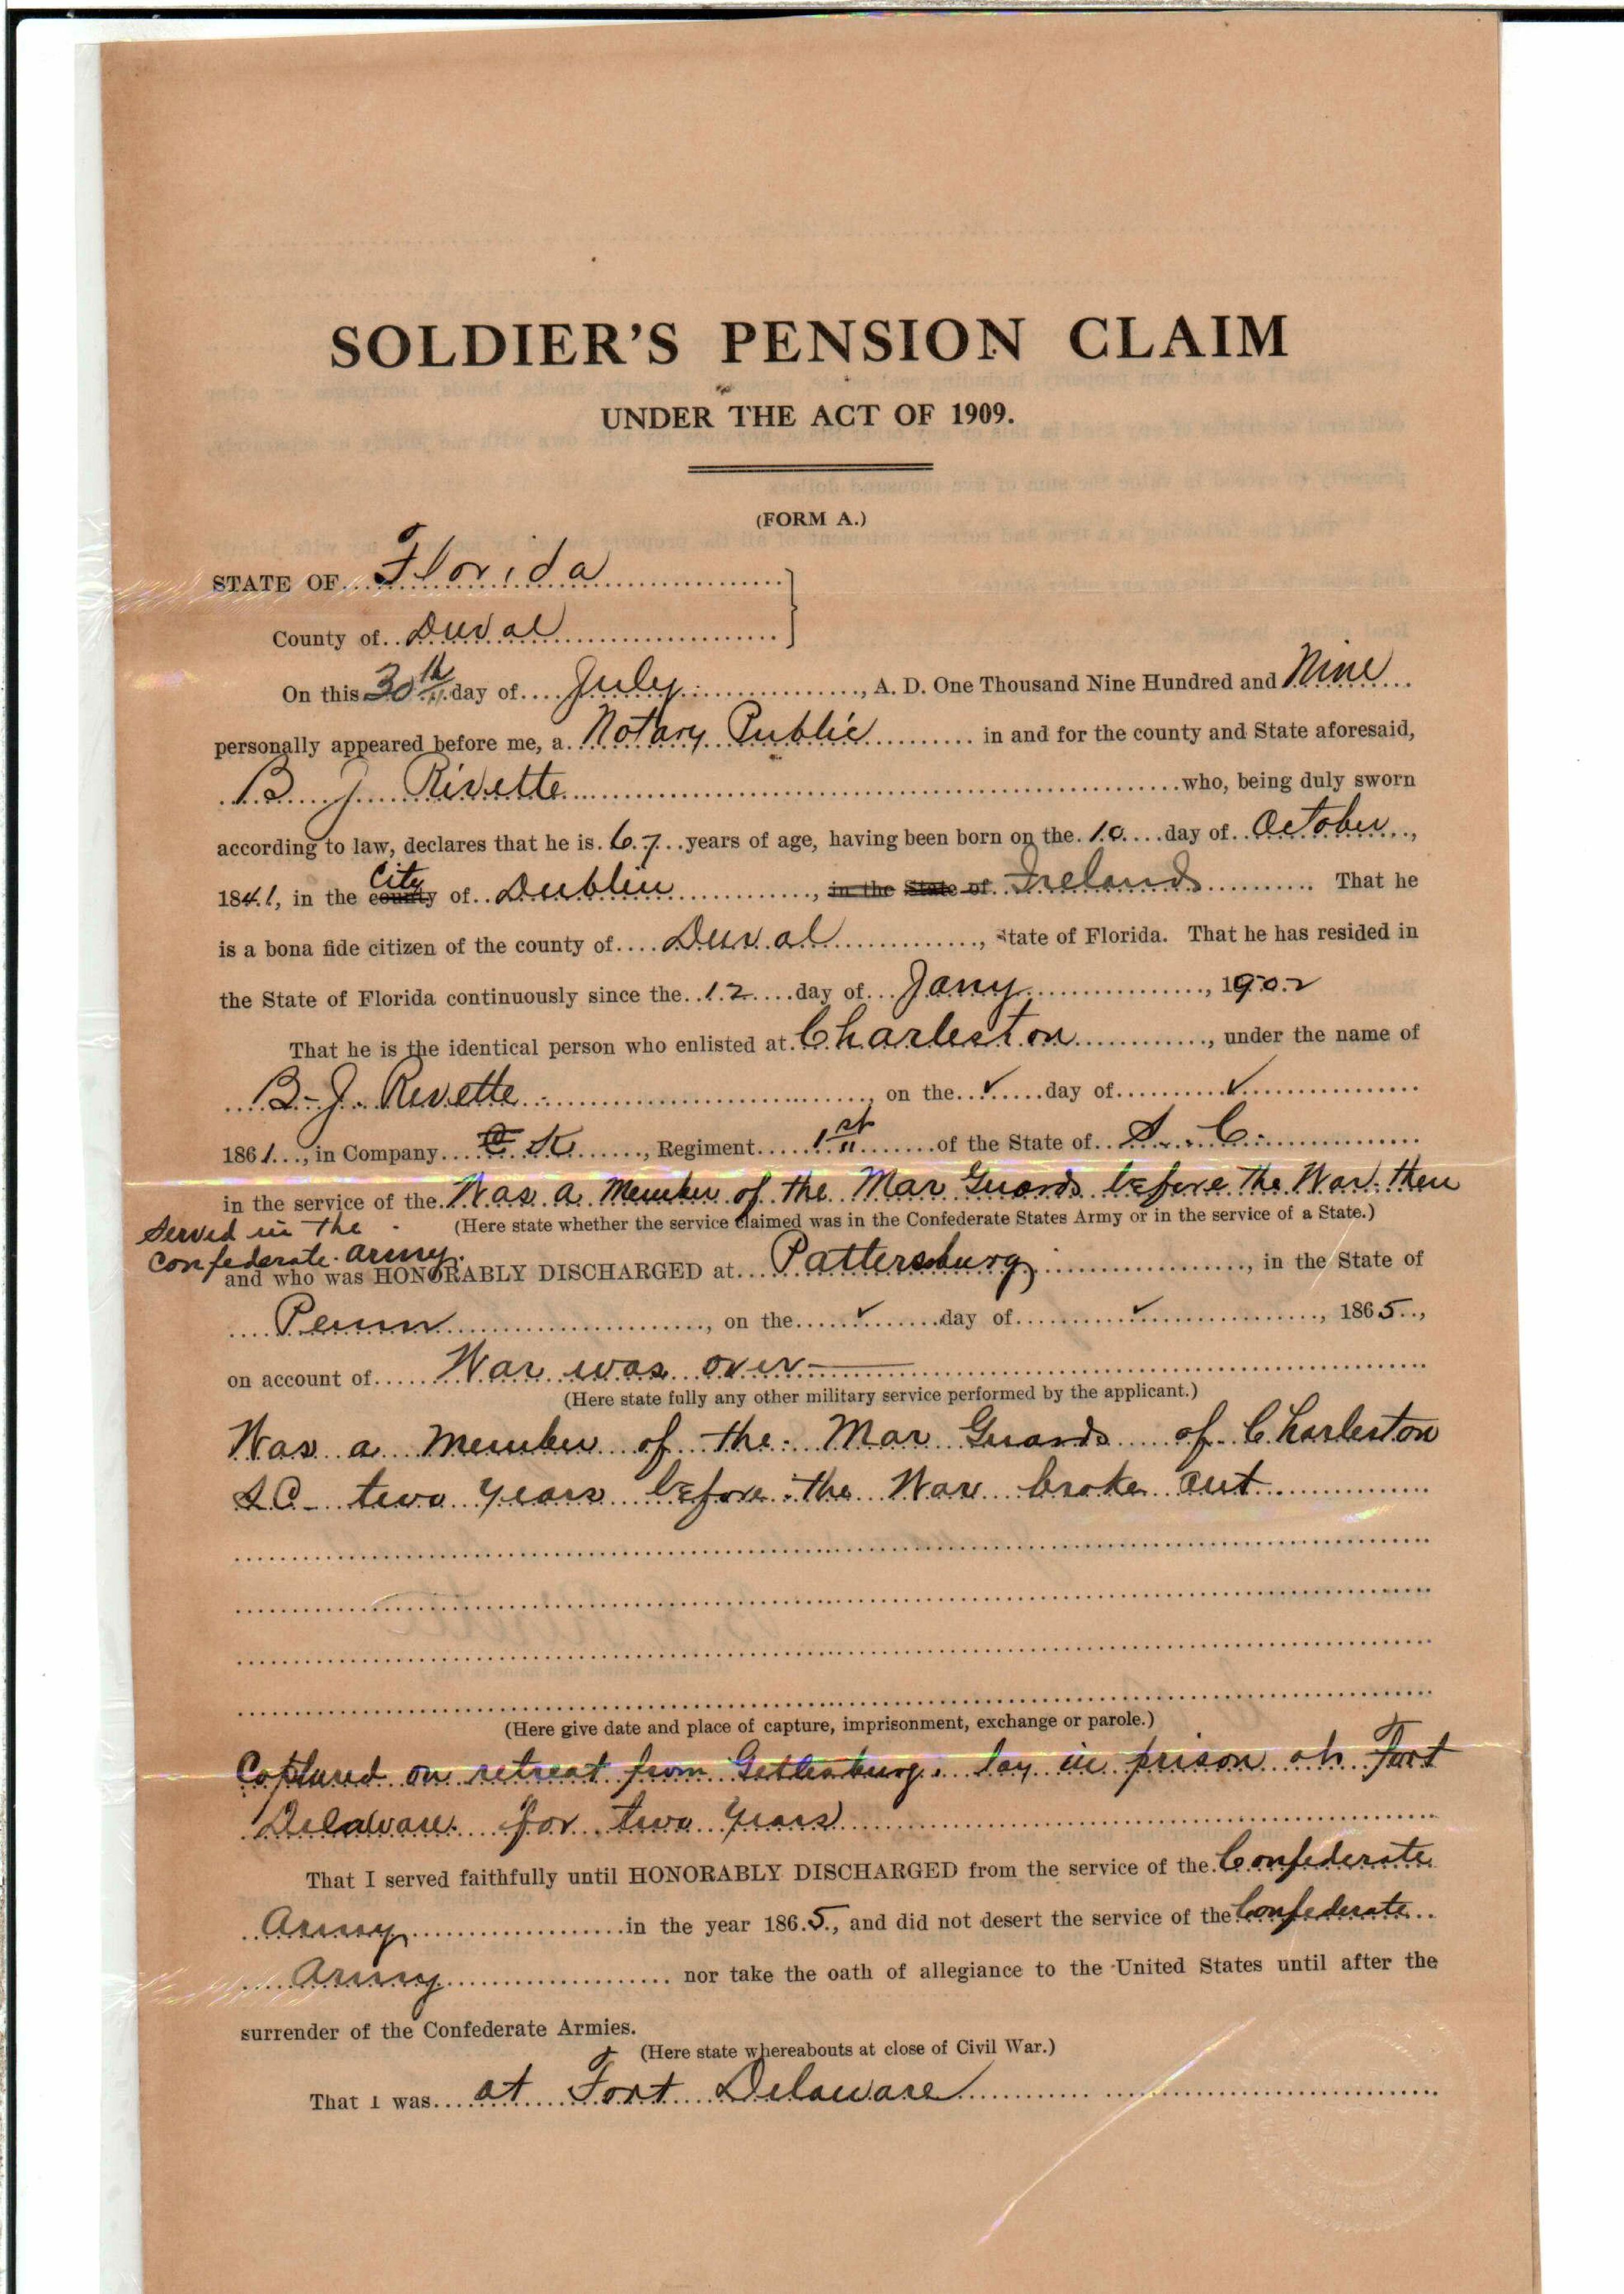 SOLDIER'S PENSION CLAIM
UNDER THE ACT OF 1909.
(FORM A.)
STATE OF Florida
County of Duval
On this 30th day of July, A. D. One Thousand Nine Hundred and Nine
personally appeared before me, a Notary Public in and for the county and State aforesaid,
B J Rivette who, being duly sworn
according to law, declares that he is 67 years of age, having been born on the 10 day of October,
City
1841, in the county of Dublin, in the State of Ireland That he
is a bona fide citizen of the county of Duval, State of Florida. That he has resided in
the State of Florida continuously since the 12 day of Jany, 1902
That he is the identical person who enlisted at Charleston, under the name of
B-J. Rivette, on the ✓ day of ✓
1861, in Company K, Regiment 1st of the State of S. C.
in the service of the Was a Member of the Mar Guards before the War. then
Served in the (Here state whether the service claimed was in the Confederate States Army or in the service of a State.)
Confederate army.
and who was HONORABLY DISCHARGED at Pattersburg, in the State of
Penn, on the ✓ day of ✓, 1865,
on account of War was over
(Here state fully any other military service performed by the applicant.)
Was a Member of the Mar Guards of Charleston
S.C. two years before the War broke out
(Here give date and place of capture, imprisonment, exchange or parole.)
Captured on retreat from lay in prison at Fort
Delaware for two years
That I served faithfully until HONORABLY DISCHARGED from the service of the Confederate
Army in the year 1865, and did not desert the service of the Confederate
Army nor take the oath of allegiance to the United States until after the
surrender of the Confederate Armies.
(Here state whereabouts at close of Civil War.)
That I was at Fort Delaware